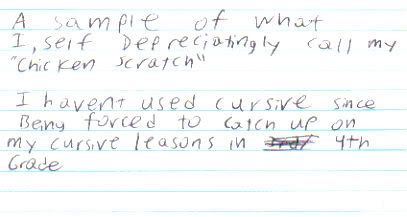 A sample of what
I, self Depreciatingly call my
"Chicken scratch"
I havent used cursive since
Being forced to catch up on
my cursive leasons in 4th
Grade